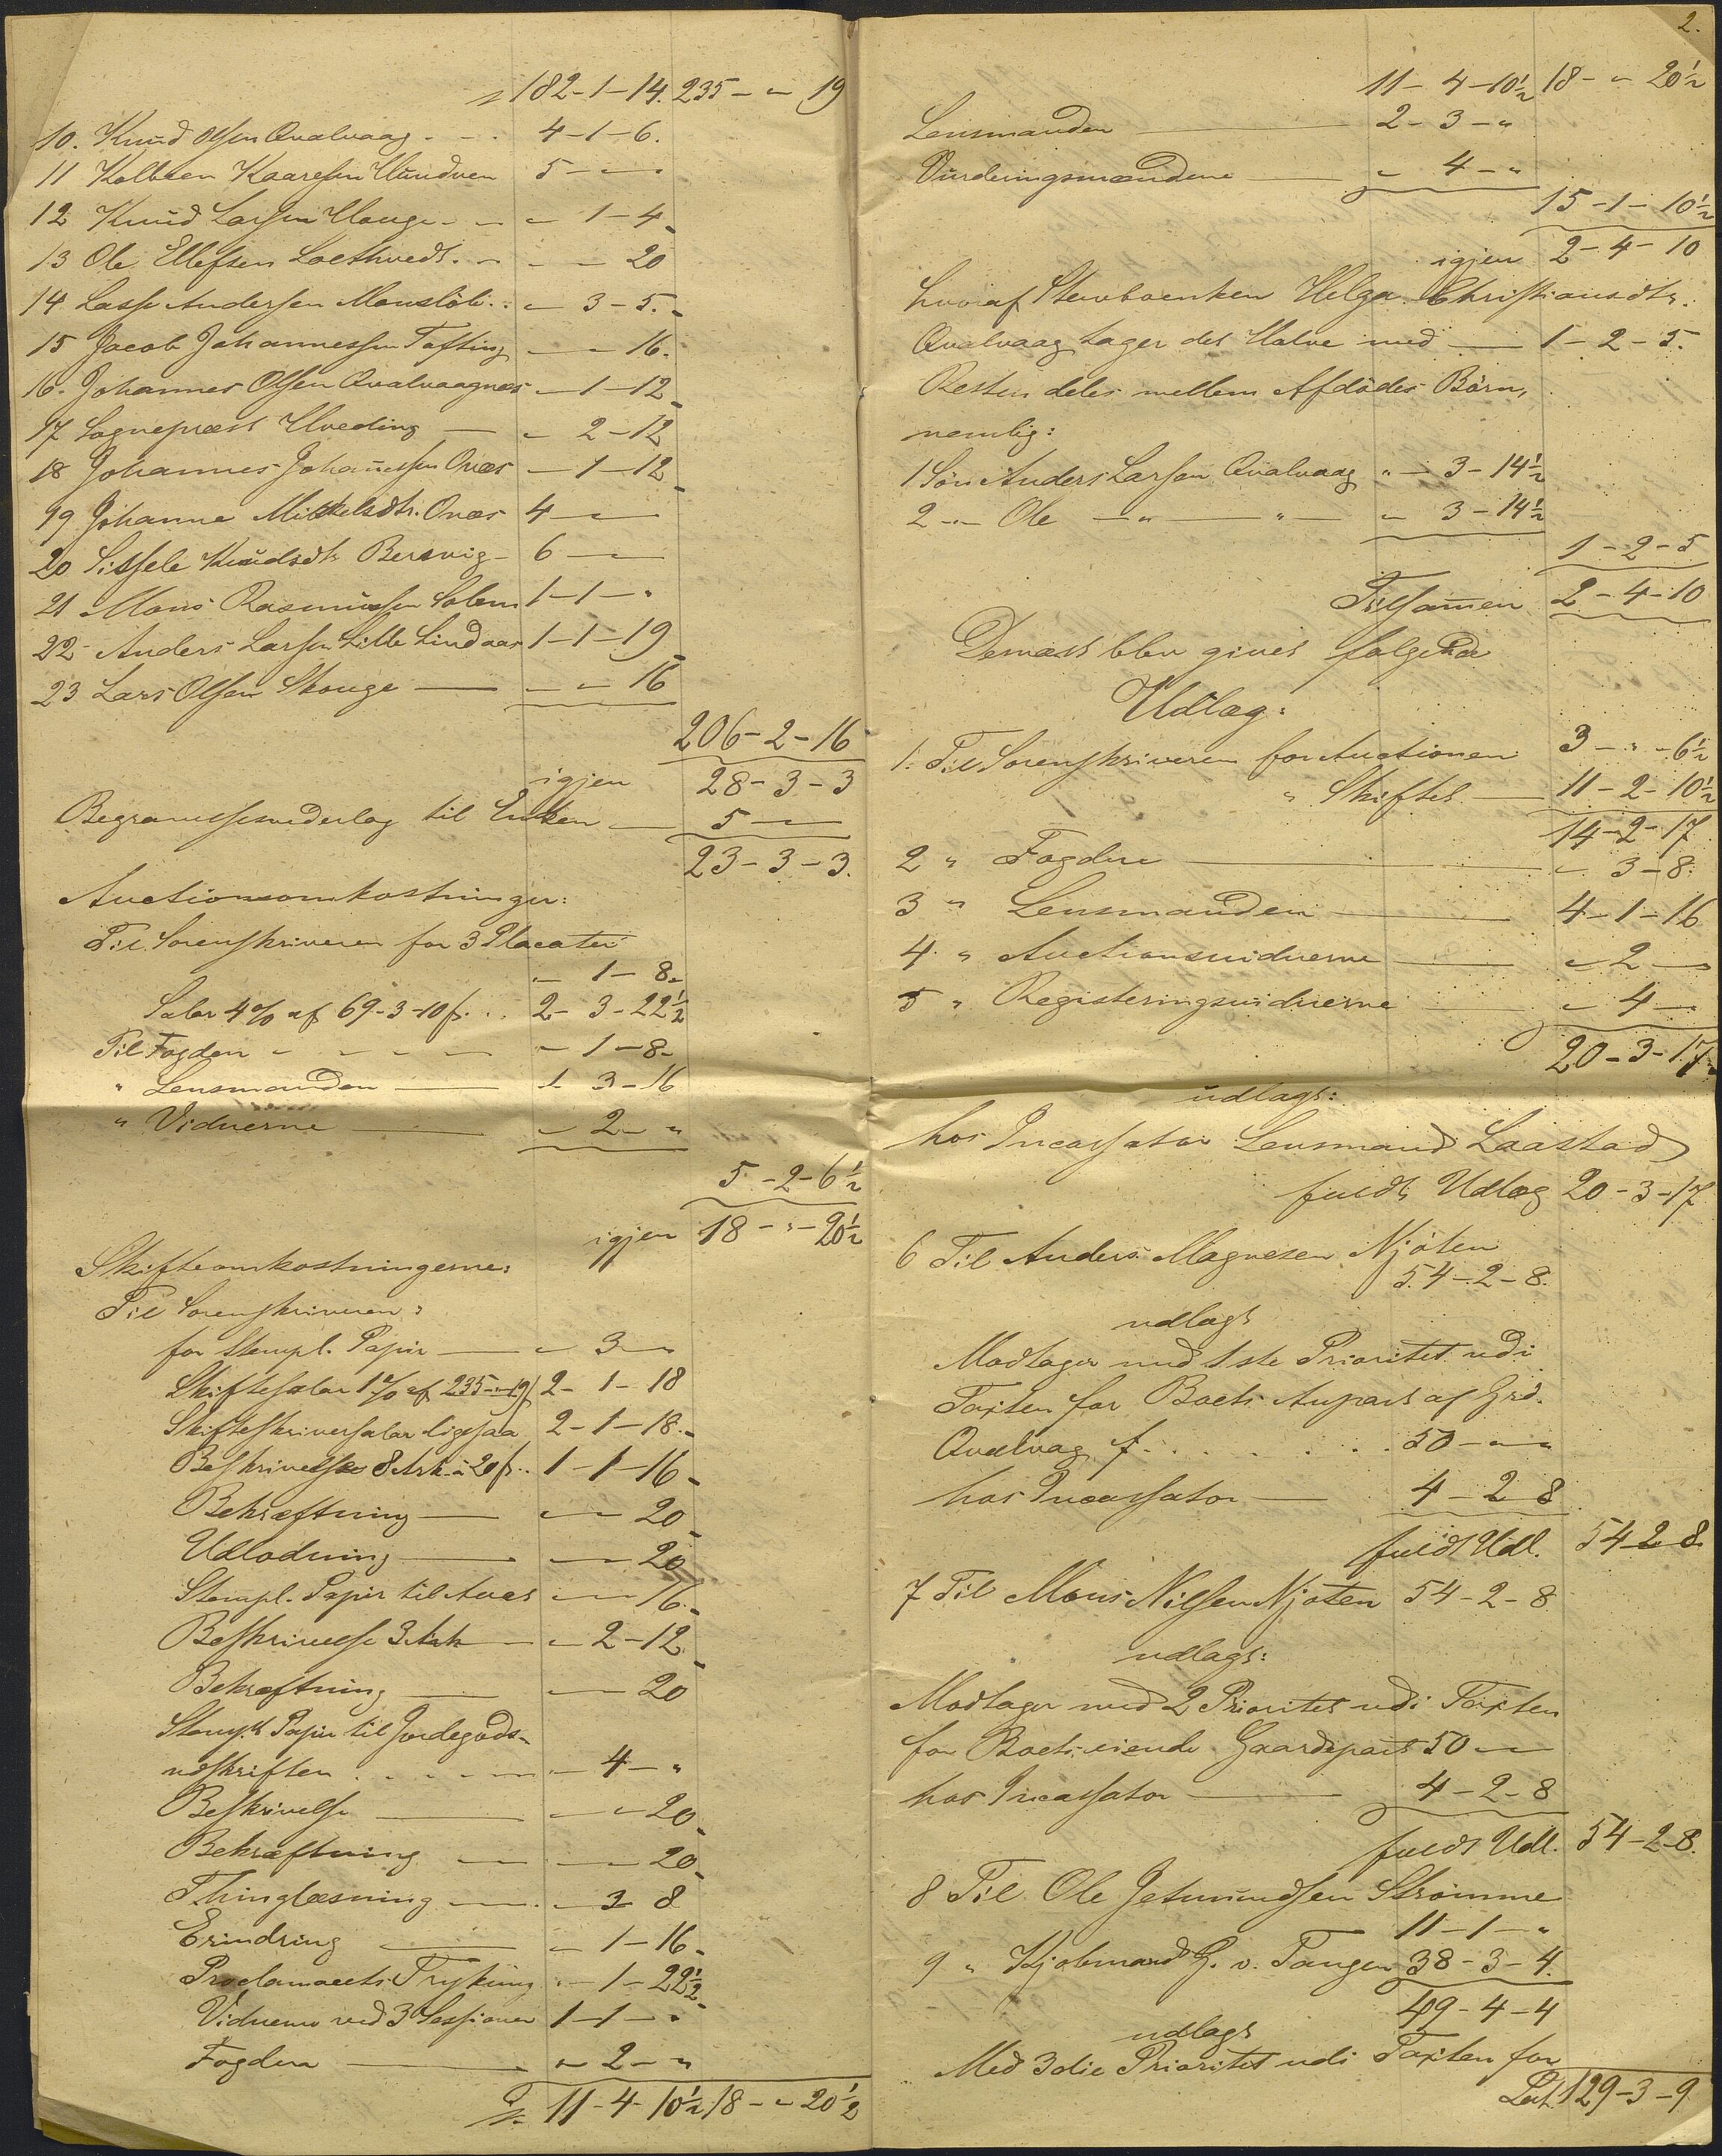 182-1-14. 235-"-19
10. Knud Olsen Qvalvaag - - 4-1-6.
11 Kolbeen Kaaresen Hundven 5-"-"
12 Knud Larsen Hauge - - "-1-4
13 Ole Ellefsen Loethvedt. - "-"-20
14 Lasse Andersen Monslöb.. "-3-5.
15 Jacob Johannessen Tofting "-"-16.
16. Johannes Olsen Qvalvaagnæs "-1-12
17 Sognepræst Hveding — "-2-12
18 Johannes Johañessen Onæs "-1-12
19 Johanne Mikkelsdtr. Onæs 4-"-"
20 Sissele Knudsdtr Bersvig - 6-"-"
21 Mons Rasmussen Solem 1-1-"
22 Anders Larsen Lille Lindaas 1-1-19
23 Lars Olsen Skouge — "-"-16
206-2-16
igjen 28-3-3
Begravelsesvederlag til Enken — 5-"-"
23-3-3.
Auctionsomkostninger:
Til Sorenskriveren for 3 Placater
"-1-8
Salar 4% af 69-3-10 s. .. 2-3-22½
Til Fogden - - - - "-1-8
" Lensmanden — 1-3-16
" Vidnerne — "-2-"
5-2-6½
igjen 18-"-20½
Skifteomkostningerne:
Til Sorenskriveren:
for Stempl. Papir — "-3-"
Skiftesalar 1% af 235-"-19 s 2-1-18
Skifteskriversalar ligesaa 2-1-18.
Beskrivelse 8 Ark à 20 s.. 1-1-16
Bekræftning — "-"-20
Udlodning — "-"-20
Stempl. Papir til Avers "-"-16.
Beskrivelse 3 Ark — "-2-12
Bekræftning — "-"-20
Stempl. Papir til Jordegods-
udskriften . . . . "-4-"
Beskrivelse — "-"-20
Bekræftning — "-"-20
Thinglæsning — "-3-8
Erindring — "-1-16
Proclamaets Trykning "-1-22½
Vidnerne ved 3 Sessioner 1-1-"
Fogden — "-2-"
11-4-10½ 18-"-20½
2.
11-4-10½ 18-"-20½
Lensmanden — 2-3-"
Vurderingsmændene — "-4-"
15-1-10½
igjen 2-4-10
hvoraf Stervboenken Helga Christiansdtr.
Qvalvaag tager det Halve med — 1-2-5.
Resten deles mellem Afdödes Börn,
nemlig:
1 Sön Anders Larsen Qvalvaag "-3-14½
2 -"- Ole -"- -"- "-3-14½
1-2-5
Tilsam̄en 2-4-10
Dernæst blev givet følgende
Udlæg:
1. Til Sorenskriveren for Auctionen 3-"-6½
" Skiftet — 11-2-10½
14-2-17
2 " Fogden — "-3-8.
3 " Lensmanden — 4-1-16
4. " Auctionsvidnerne — "-2-"
5 " Registeringsvidnerne "-4-"
20-3-17
udlagt:
hos Incassator Lensmand Laastad
fuldt Udlæg 20-3-17
6 Til Anders Magnesen Njöten
54-2-8.
udlagt
Modtager med 1ste Prioritet udi
Taxten for Boets Anpart af Grd.
Qvalvag f. . . . . . . 50-"-"
hos Incassator — 4-2-8
fuldt Udl. 54-2-8
7 Til Mons Nilsen Njöten 54-2-8
udlagt:
Modtager med 2 Prioritet udi Taxten
for Boets eiende Gaardepart 50-"-"
hos Incassator — 4-2-8
fuldt Udl. 54-2-8.
8 Til Ole Jetmundsen Strömme
11-1-"
9 " Kjöbmand G. v. Tangen 38-3-4.
49-4-4
udlagt
Med 3die Prioritet udi Taxten for
Lat. 129-3-9